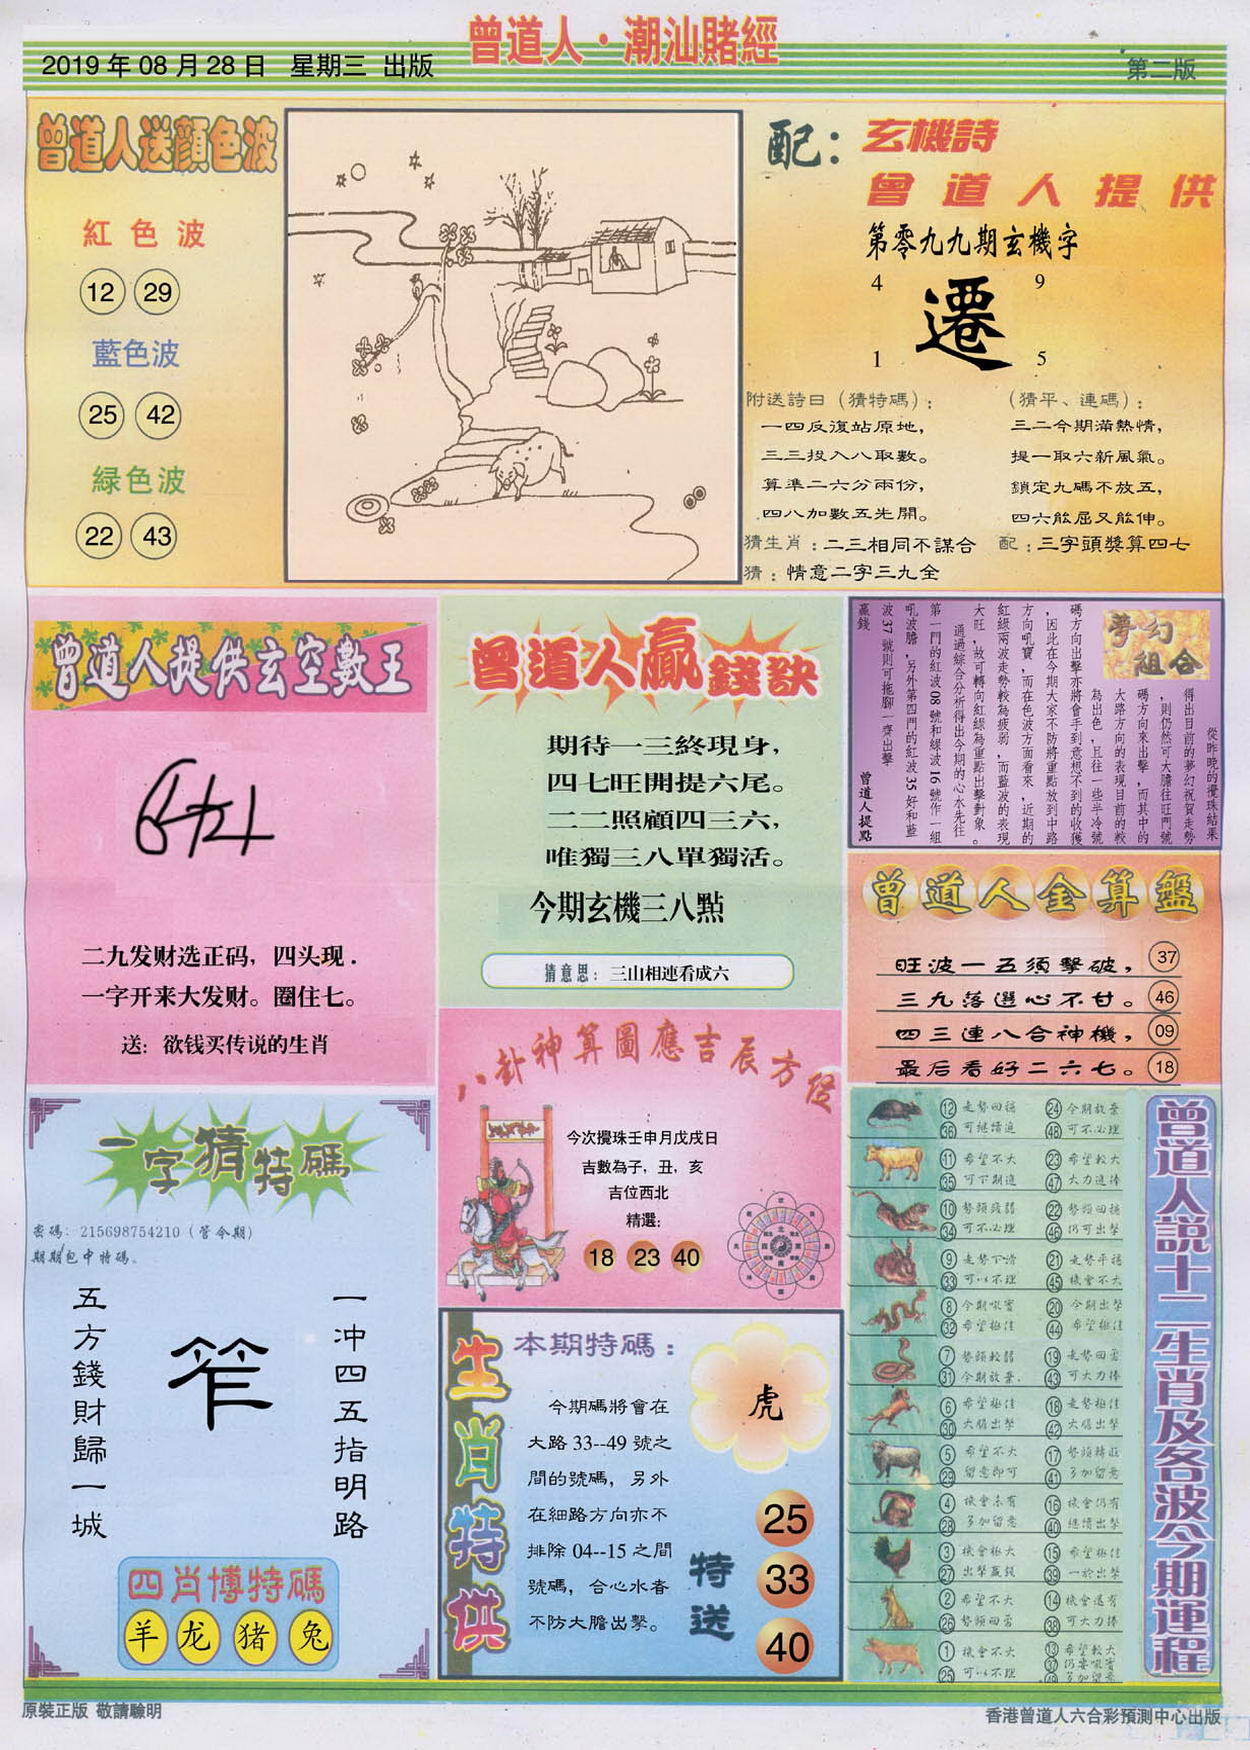 曾道人·潮汕賭經
2019年08月28日 星期三 出版
第二版
曾道人送顔色波
紅色波
12 29
藍色波
25 42
緑色波
22 43
配：玄機詩
曾道人提供
第零九九期玄機字
4 9
遷
1 5
附送詩曰（猜特碼）：
一四反復站原地，
三三投入八取數。
算準二六分兩份，
四八加數五先開。
（猜平、連碼）：
三二今期滿熱情，
提一取六新風氣。
鎖定九碼不放五，
四六能屈又能伸。
猜生肖：二三相同不謀合 配：三字頭獎算四七
猜：情意二字三九全
曾道人提供玄空數王
二九发财选正码，四头现．
一字开来大发财。圈住七。
送：欲钱买传说的生肖
曾道人贏錢訣
期待一三終現身，
四七旺開提六尾。
二二照顧四三六，
唯獨三八單獨活。
今期玄機三八點
猜意思：三山相連看成六
夢幻
組合
從昨晚的攪珠結果
得出目前的夢幻祝賀走勢
，則仍然可大膽往旺門號
碼方向來出擊，而其中的
大路方向的表現目前的較
為出色，且往一些半冷號
碼方向出擊亦將會手到意想不到的收獲
，因此在今期大家不防將重點放到中路
方向吼寶，而在色波方面看來，近期的
紅緑兩波走勢較為疲弱，而藍波的表現
大旺，故可轉向紅緑為重點出擊對象。
通過綜合分析得出今期的心水先往
第一門的紅波08號和緑波16號作一組
吼波膽，另外第四門的紅波35好和藍
波37號則可拖腳一齊出擊
贏錢
曾道人提點
曾道人金算盤
旺波一五須擊破， 37
三九落選心不甘。 46
四三連八合神機， 09
最后看好二六七。 18
一字猜特碼
密碼：215698754210（管令期）
期期包中特碼。
一冲四五指明路
笮
五方錢財歸一城
四肖博特碼
羊 龙 猪 兔
八卦神算圖應吉辰方位
今次攪珠壬申月戊戌日
吉數為子，丑，亥
吉位西北
精選：
18 23 40
生肖特供
本期特碼：
今期碼將會在
大路33--49號之
間的號碼，另外
在細路方向亦不
排除04--15之間
號碼，合心水者
不防大膽出擊。
虎
特送
25
33
40
曾道人説十二生肖及各波今期運程
12 走勢回穩 24 今期放棄
36 可继續追 48 可不必理
11 希望不大 23 希望較大
35 可下期追 47 大力追捧
10 勢頭疲弱 22 勢頭回穩
34 可不必理 46 仍可出擊
9 走勢下滑 21 走勢平穩
33 可以不理 45 機會不大
8 今期吼寶 20 今期出擊
32 希望極佳 44 希望極佳
7 勢頭較弱 19 走勢回落
31 今期放棄． 43 可大力捧
6 希望極佳 18 走勢極佳
30 大膽出擊 42 大膽出擊
5 希望不大 17
29 留意即可 41 多加留意
4 機會未有 16 機會仍有
28 多加留意 40 继續出擊
3 機會極大 15 希望極佳
27 出擊贏錢 39 一於出擊
2 希望不大 14 機會還有
26 勢頭回落 38 可大力捧
1 機會不大 13 希望較大
25 可以不理 37 仍要吼寶
49 多加留意
原裝正版 敬請驗明
香港曾道人六合彩預測中心出版